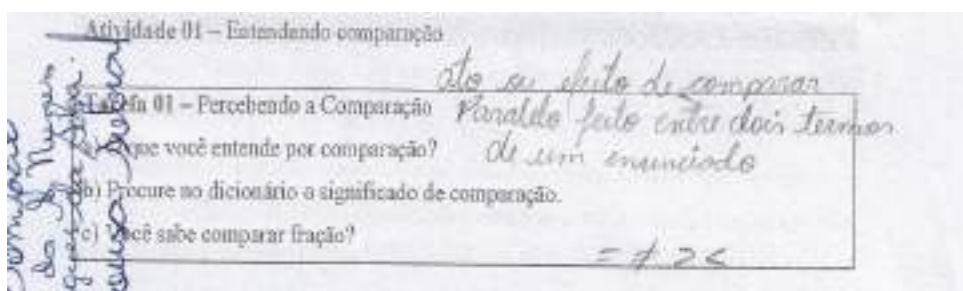 Atividade 01 – Entendendo comparação
ato ou efeito de comparar
Tarefa 01 – Percebendo a Comparação
Paralelo feito entre dois termos
a) O que você entende por comparação?
de um enunciado
b) Procure no dicionário o significado de comparação.
c) Você sabe comparar fração?
= ≠ > <